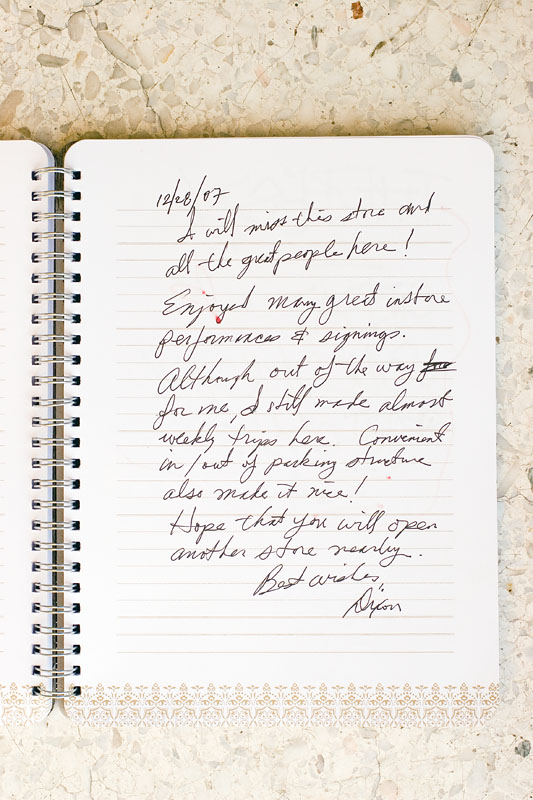 12/28/07
I will miss this store and
all the great people here!
Enjoyed many great instore
performances & signings.
Although out of the way
for me, I still made almost
weekly trips here. Convenient
in/out of parking structure
also make it nice!
Hope that you will open
another store nearby.
Best wishes,
Dixon